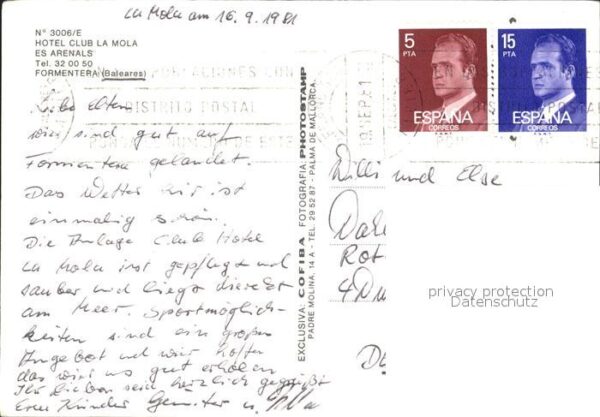 La Mola am 16.9.1981
Nº 3006/E
HOTEL CLUB LA MOLA
ES ARENALS
Tel. 32 00 50
FORMENTERA (Baleares)
5
PTA
ESPAÑA
CORREOS
15
PTA
ESPAÑA
CORREOS
DISTRITO POSTAL
Liebe Eltern
wir sind gut auf
Formentera gelandet.
Das Wetter hier ist
einmalig schön.
Die Anlage Club Hotel
La Mola ist gepflegt und
sauber und liegt direkt
am Meer. Sportmöglich-
keiten sind ein großes
Angebot und wir hoffen
das wir uns gut erholen
Ihr Lieben sein herzlich gegrüßt
Eure Kinder Günter u.
EXCLUSIVA: COFIBA FOTOGRAFIA: PHOTOSTAMP
PADRE MOLINA, 14 A - TEL. 29 52 87 - PALMA DE MALLORCA.
Willi und Else
Rot
privacy protection
Datenschutz